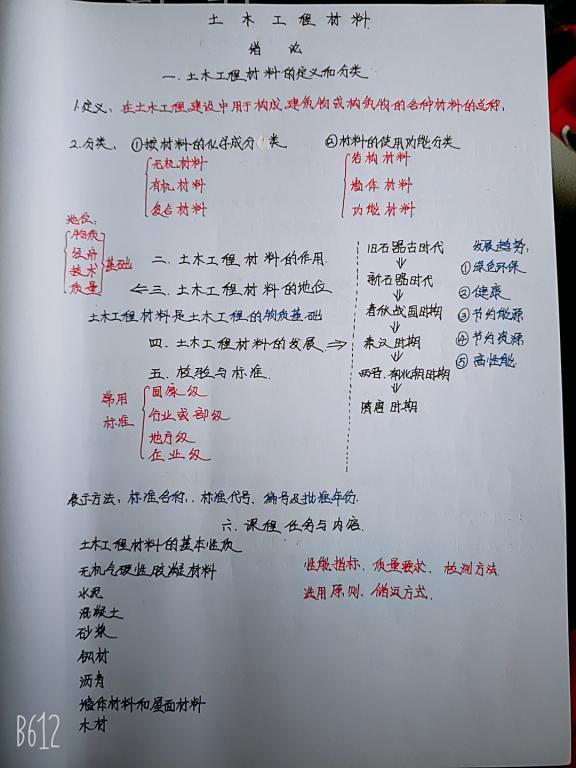 土木工程材料
绪论
一.土木工程材料的定义和分类
1.定义：在土木工程建设中用于构成建筑物或构筑物的各种材料的总称.
2.分类、①按材料的化学成分分类 ②材料的使用功能分类
无机材料
有机材料
复合材料
结构材料
墙体材料
功能材料
地位：
物质
经济
技术
质量
基础
二.土木工程材料的作用
⇐三.土木工程材料的地位
土木工程材料是土木工程的物质基础
四.土木工程材料的发展⇒
旧石器古时代
新石器时代
春秋战国时期
秦汉时期
两晋.南北朝时期
隋唐时期
发展趋势:
①绿色环保
②健康
③节约能源
④节约资源
⑤高性能.
五.检验与标准.
常用
标准
国家级
行业或部级
地方级
企业级
表示方法：标准名称、标准代号、编号&批准年份.
六.课程任务与内容.
土木工程材料的基本性质
无机气硬性胶凝材料
水泥
混凝土
砂浆
钢材
沥青
墙体材料和屋面材料
木材
性能指标、质量要求、检测方法
选用原则、储运方式.
B612